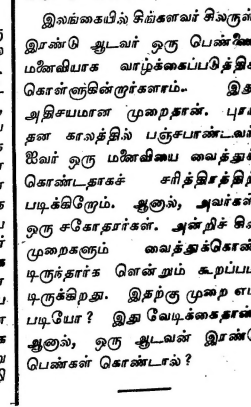 இலங்கையில் சிங்களவர் சிலருள்
இரண்டு ஆடவர் ஒரு பெண்ணை
மனைவியாக வாழ்க்கைப்படுத்திக்
கொள்ளுகின்றார்களாம். இது
அதிசயமான முறைதான். புரா
தன காலத்தில் பஞ்சபாண்டவர்
ஐவர் ஒரு மனைவியை வைத்துக்
கொண்டதாகச் சரித்திரத்திற்
படிக்கிறோம். ஆனால், அவர்கள்
ஒரு சகோதரர்கள். அன்றிச் சில
முறைகளும் வைத்துக்கொண்
டிருந்தார்க ளென்றும் கூறப்பட்
டிருக்கிறது. இதற்கு முறை எப்
படியோ? இது வேடிக்கைதான்
ஆனால், ஒரு ஆடவன் இரண்டு
பெண்கள் கொண்டால்?